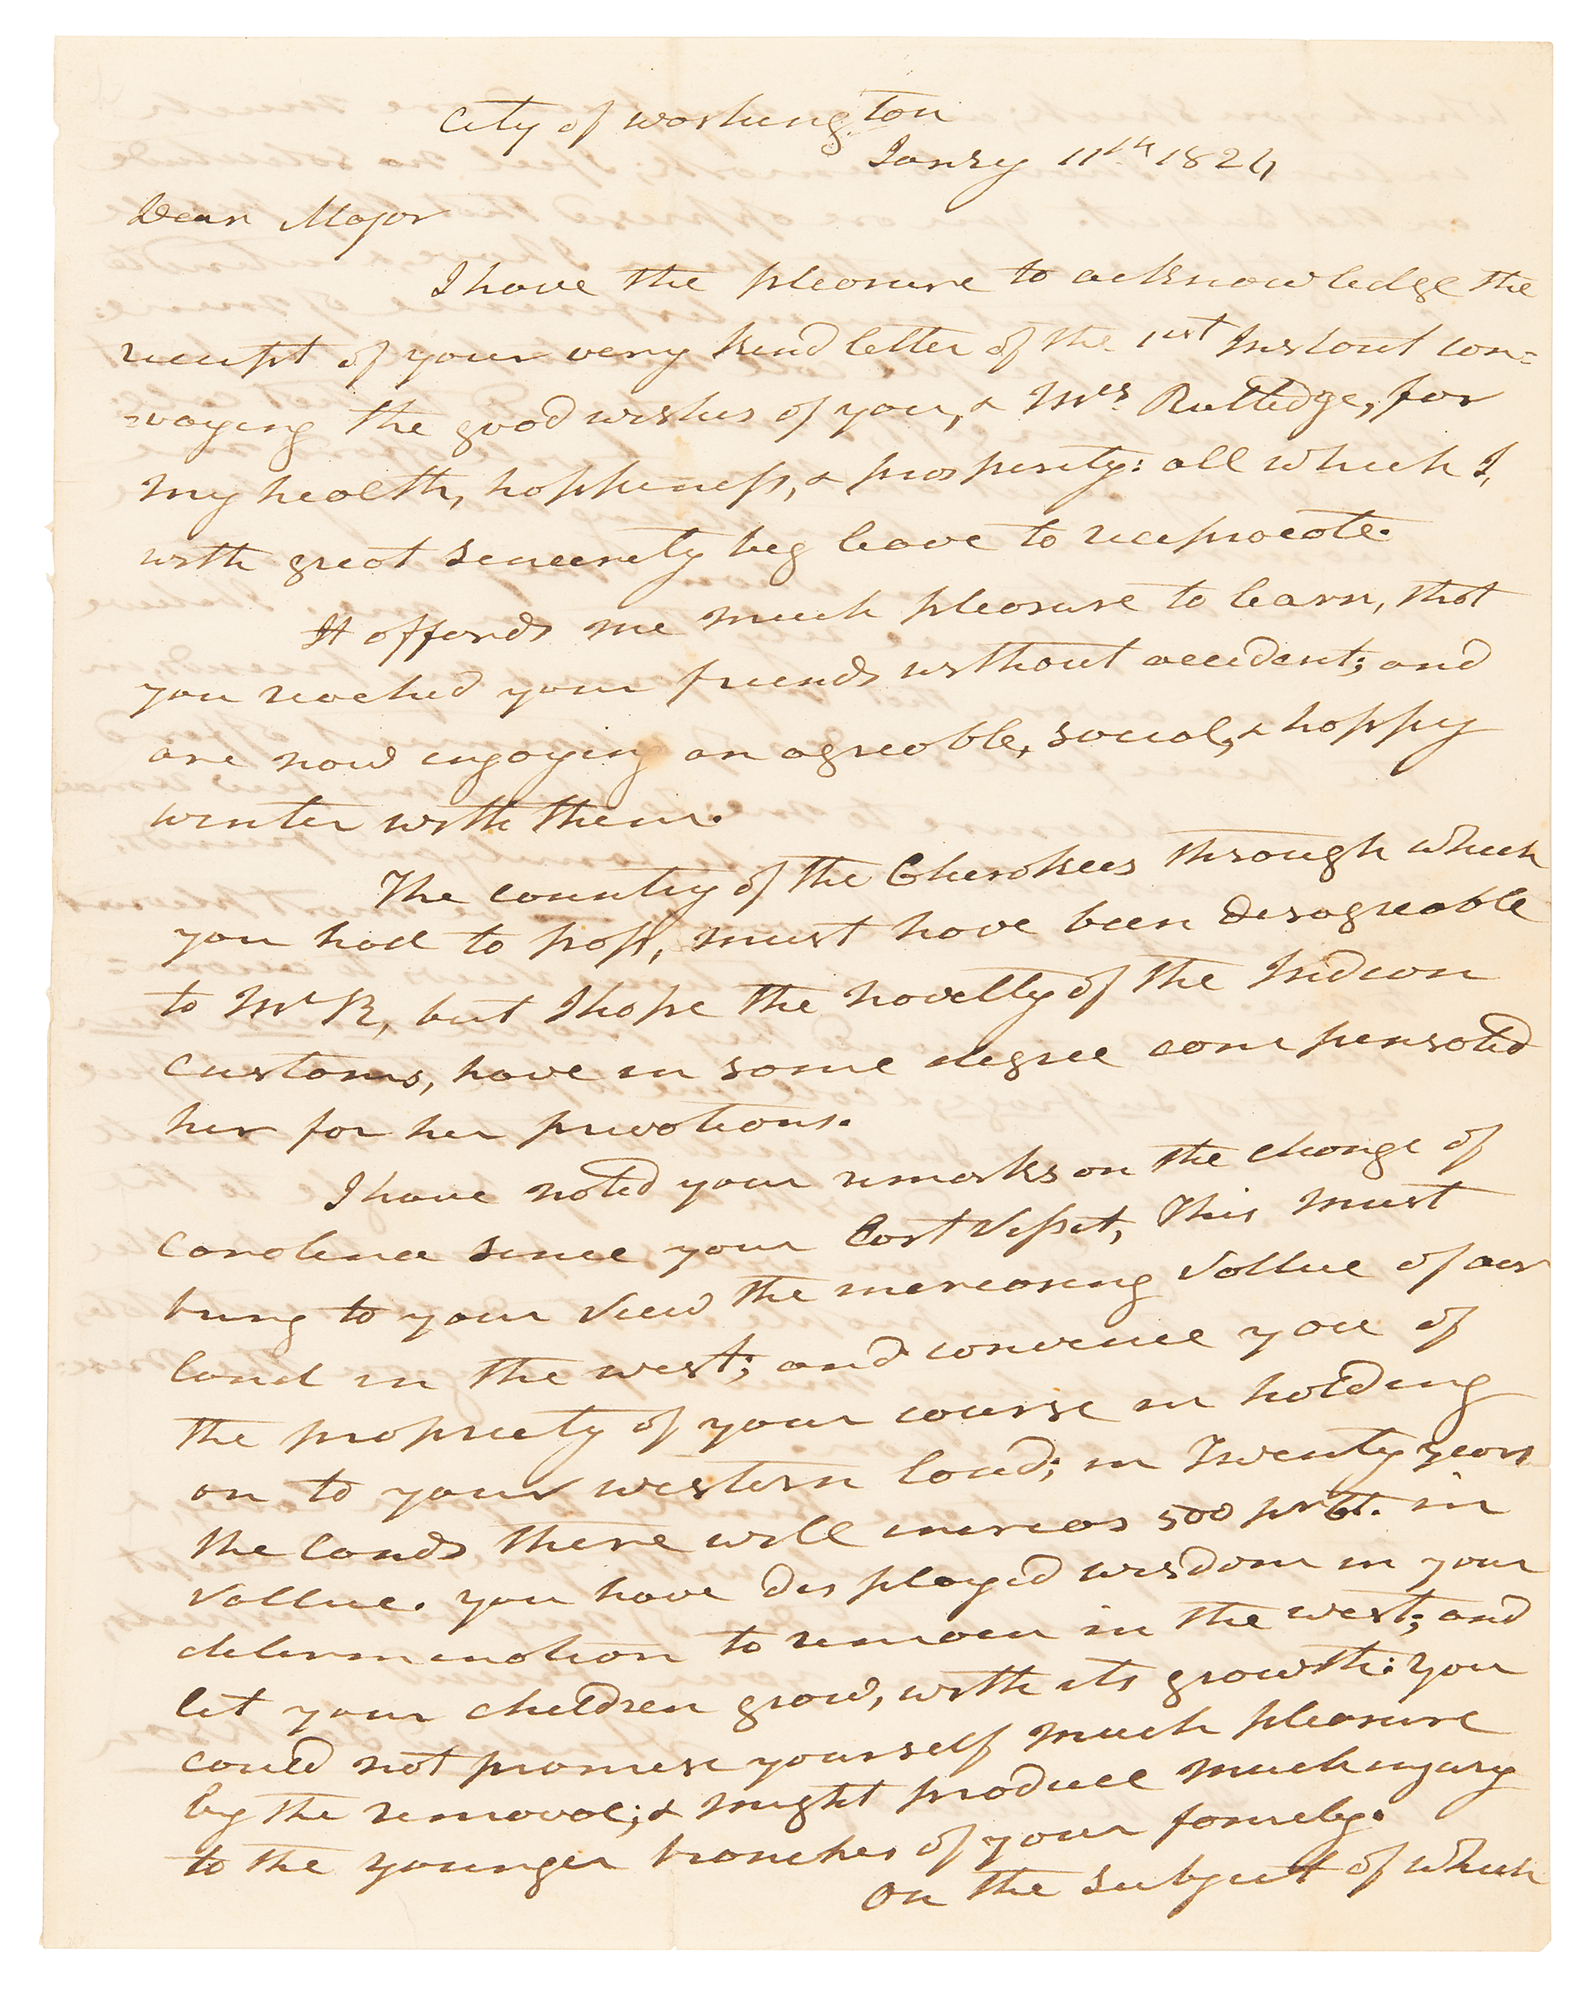 City of Washington
Janry 11th 1824
Dear Major
I have the pleasure to acknowledge the
receipt of your very kind letter of the 1rst Instant con=
=vaying the good wishes of you, & Mrs. Rutledge, for
my health, happiness, & prosperity: all which I,
with great sincerety beg leave to reciprocate.
It affords me much pleasure to learn, that
you reached your friends without accident; and
are now enjoying an agreable, social, & happy
winter with them.
The country of the Cherokees through which
you had to pass, must have been disagreable
to Mrs R, but I hope the novelty of the Indian
customs, have in some degree compensated
her for her privations.
I have noted your remarks on the change of
Carolina since your last visit, This must
bring to your view the increasing vallue of our
land in the west; and convince you of
the propriety of your course in holding
on to your western land; in Twenty years
the lands there will increas 500 pr Ct. in
vallue. you have displayed wisdom in your
determination to remain in the west; and
let your children grow, with its growth: you
could not promise yourself much pleasure
by the removal; & might produce much injury
to the younger branches of your family.
On the subject of which